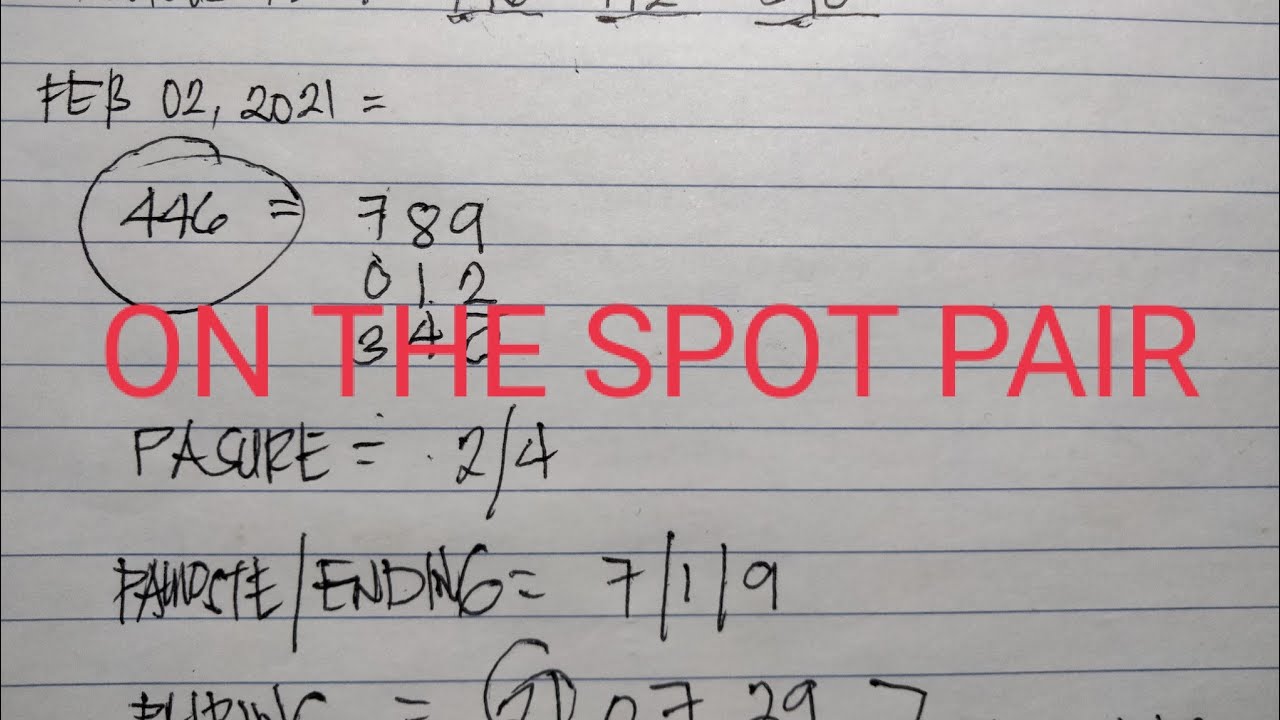 FEB 02, 2021 =
446 = 789
012
34
ON THE SPOT PAIR
PASURE = 2/4
PAMOSTE/ENDING = 7/1/9
= 07 29